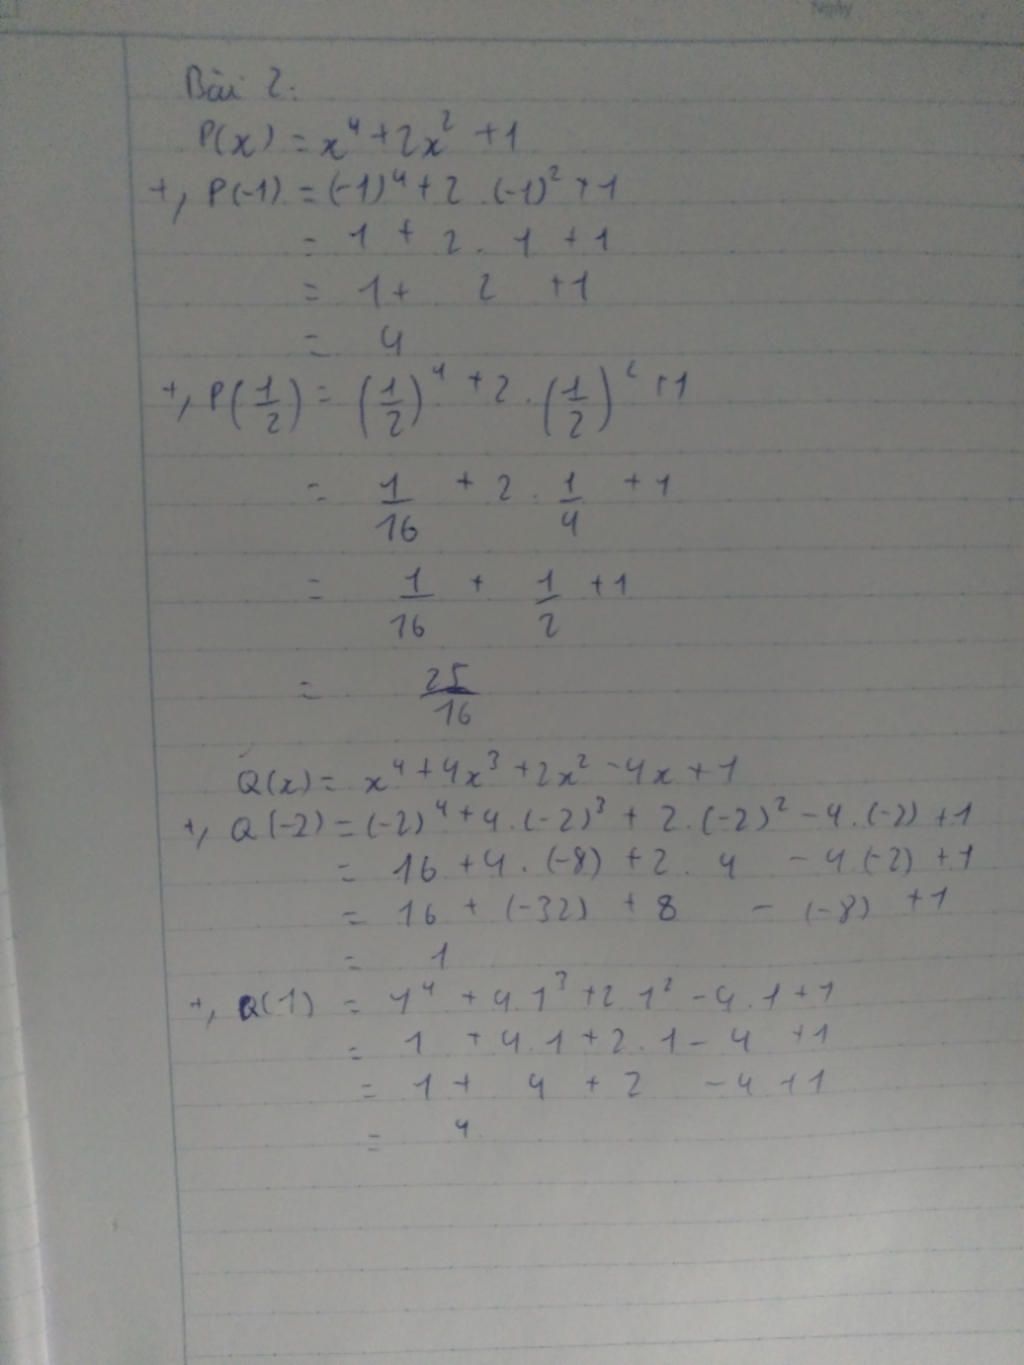 Ngày
Bài 2:
P(x) = x⁴ + 2x² + 1
+, P(-1) = (-1)⁴ + 2 . (-1)² + 1
= 1 + 2 . 1 + 1
= 1 + 2 + 1
= 4
+, P(1/2) = (1/2)⁴ + 2 . (1/2)² + 1
= 1/16 + 2 . 1/4 + 1
= 1/16 + 1/2 + 1
= 25/16
Q(x) = x⁴ + 4x³ + 2x² - 4x + 1
+, Q(-2) = (-2)⁴ + 4 . (-2)³ + 2 . (-2)² - 4 . (-2) + 1
= 16 + 4 . (-8) + 2 . 4 - 4 (-2) + 1
= 16 + (-32) + 8 - (-8) + 1
= 1
+, Q(1) = 1⁴ + 4 . 1³ + 2 . 1² - 4 . 1 + 1
= 1 + 4 . 1 + 2 . 1 - 4 + 1
= 1 + 4 + 2 - 4 + 1
= 4